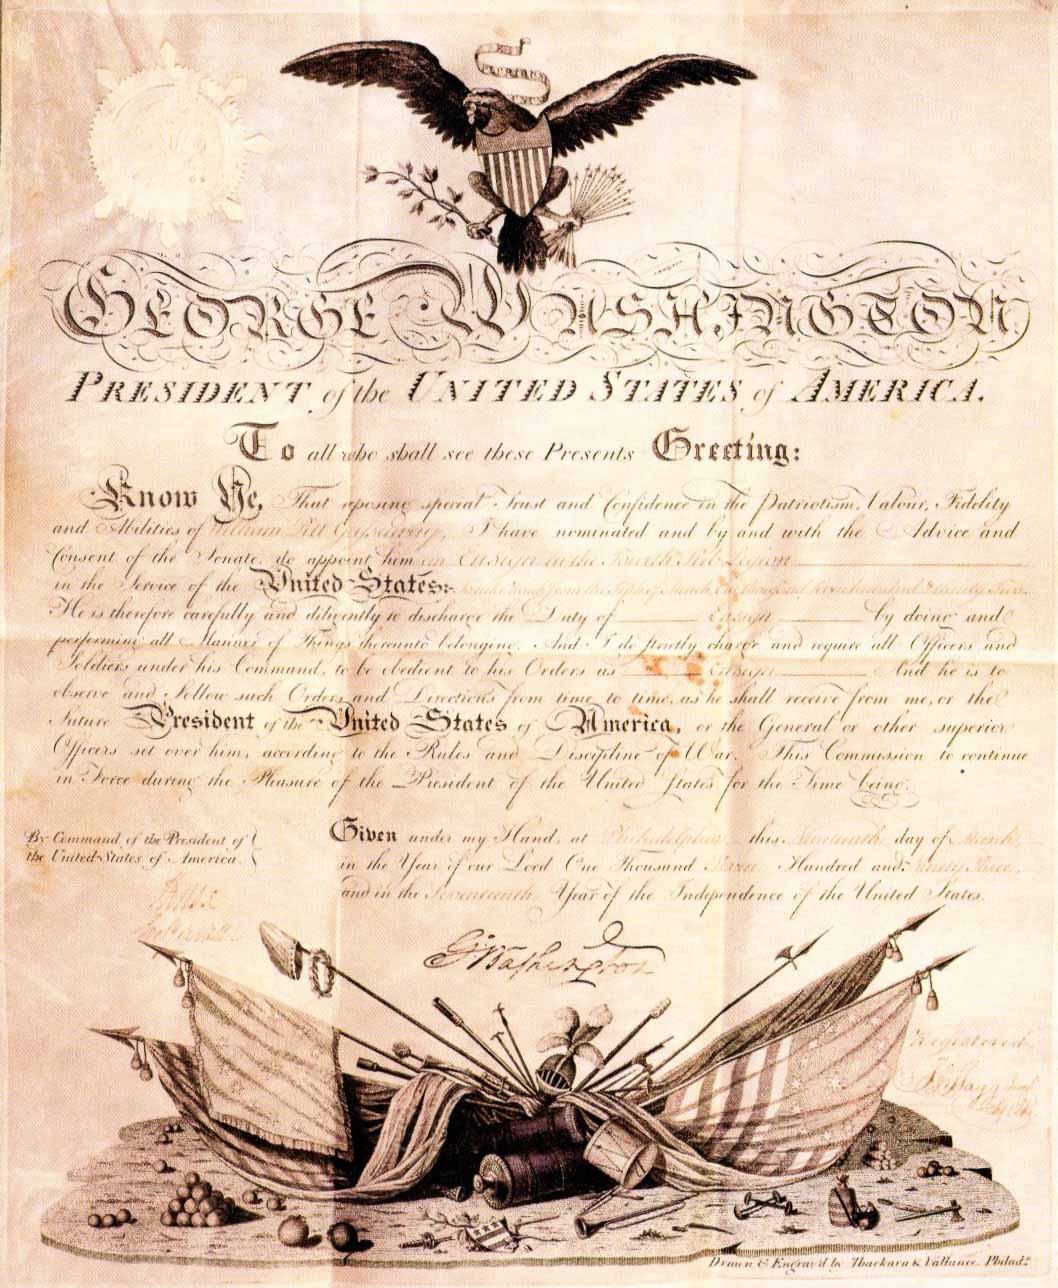 GEORGE WASHINGTON
PRESIDENT of the UNITED STATES of AMERICA.
To all who shall see these Presents Greeting:
Know Ye, That reposing special Trust and Confidence in the Patriotism, Valour, Fidelity
and Abilities of William Pitt I have nominated and by and with the Advice and
Consent of the Senate, do appoint him an Ensign in the Fourth Sub Legion
in the Service of the United States: to rank from the of March, One thousand Seven hundred & ninety
He is therefore carefully and diligently to discharge the Duty of Ensign by doing and
performing all Manner of Things thereunto belonging. And I do strictly charge and require all Officers and
Soldiers under his Command, to be obedient to his Orders as Ensign And he is to
observe and follow such Orders, and Directions from time, to time, as he shall receive from me, or the
future President of the United States of America, or the General or other superior
Officers set over him, according to the Rules and Discipline of War. This Commission to continue
in Force during the Pleasure of the President of the United States for the Time being.
By Command of the President of
the United States of America.
Given under my Hand, at Philadelphia this Nineteenth day of March
in the Year of our Lord One Thousand Seven Hundred and Ninety Three,
and in the Seventeenth Year of the Independence of the United States.
G. Washington
Registered
Drawn & Engrav'd by Thackara & Vallance. Philada.